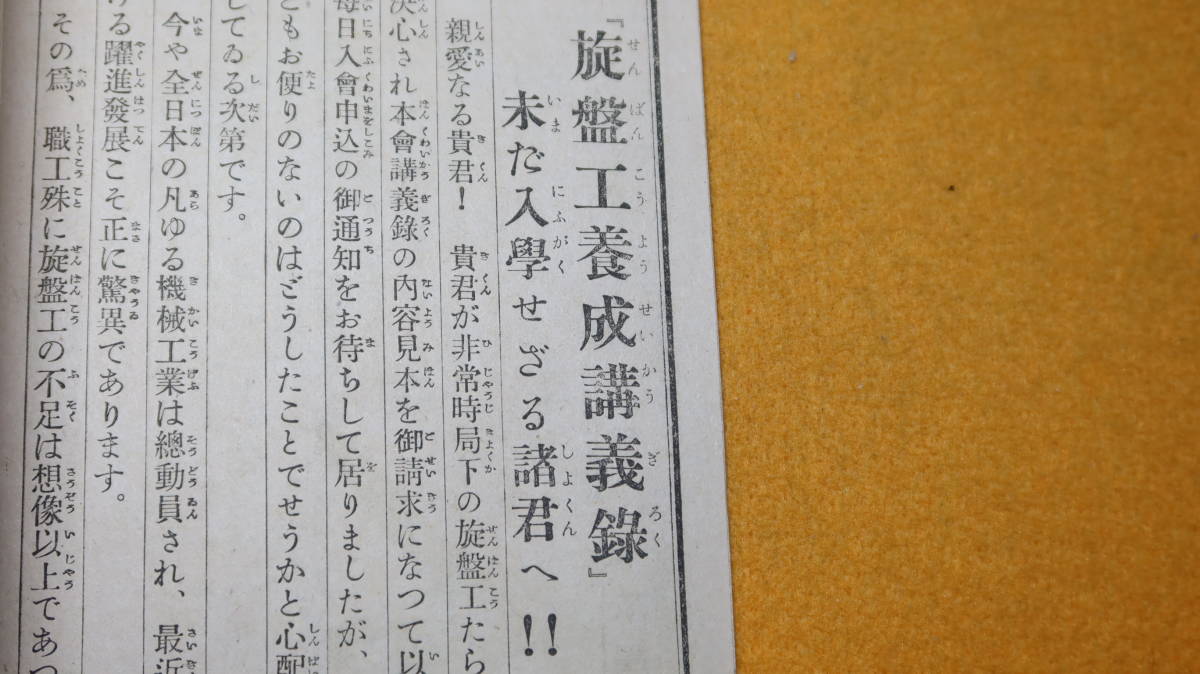 『旋盤工養成講義錄』
未だ入學せざる諸君へ!!
親愛なる貴君！　貴君が非常時局下の旋盤工たら
決心され本會講義錄の內容見本を御請求になつて以
每日入會申込の御通知をお待ちして居りましたが、
ともお便りのないのはどうしたことでせうかと心配
してゐる次第です。
今や全日本の凡ゆる機械工業は總動員され、最近
ける躍進發展こそ正に驚異であります。
その爲、職工殊に旋盤工の不足は想像以上であつ